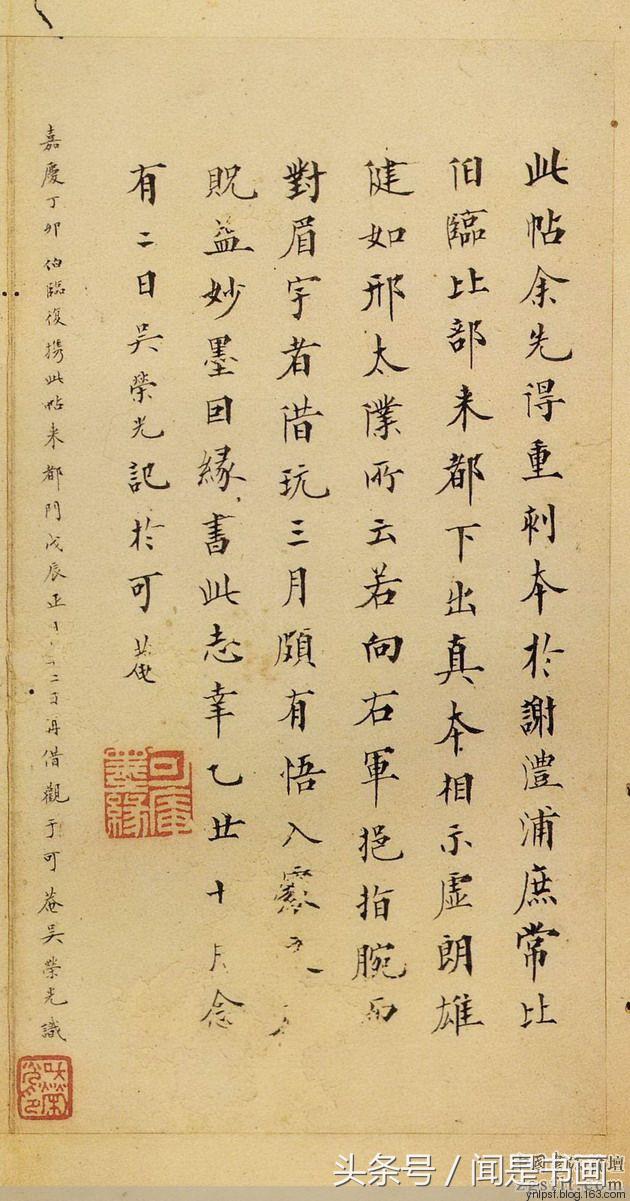 此帖余先得重刻本於謝澧浦庶常比
伯臨比部来都下出真本相示虚朗雄
健如邢太僕所云若向右軍挹指腕而
對眉宇者借玩三月頗有悟入
貺益妙墨因緣書此志幸乙丑十月念
有二日吳榮光記於可菴
可庵墨緣
嘉慶丁卯伯臨復攜此帖来都門戊辰正二日再借觀于可菴吳榮光識
吳榮光印
头条号 / 闻是书画
ynlpsf.blog.163.com